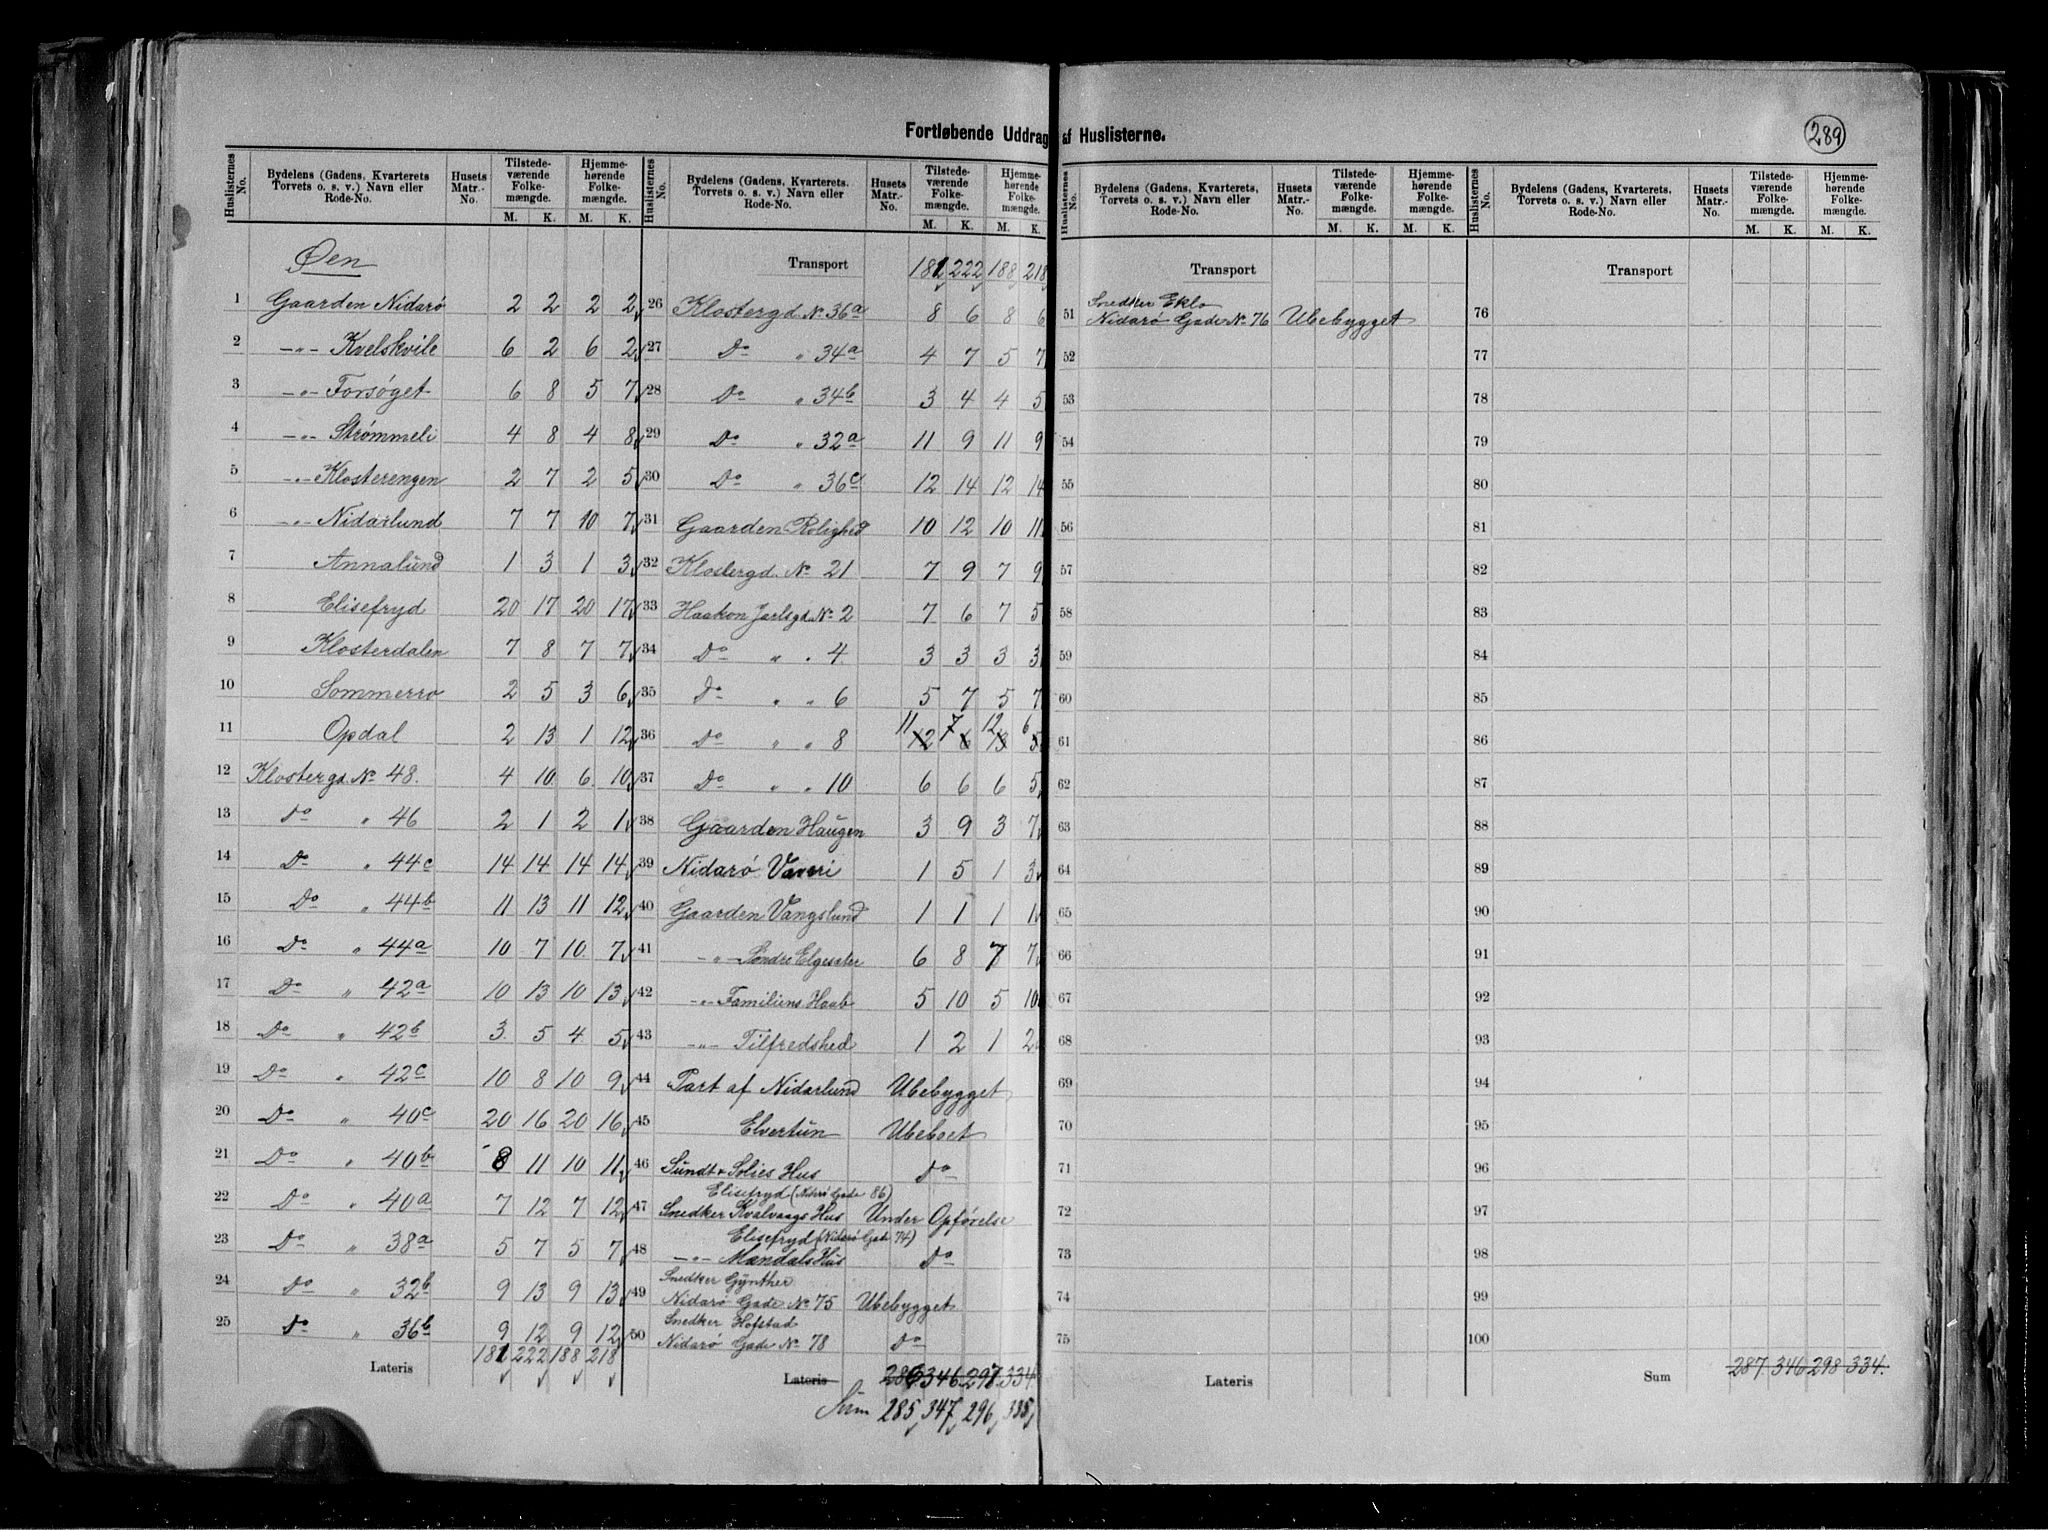 Fortløbende Uddrag af Huslisterne.
289
Huslisternes No. | Bydelens (Gadens, Kvarterets Torvets o. s. v.) Navn eller Rode-No. | Husets Matr.-No. | Tilstedeværende Folkemængde. M. K. | Hjemmehørende Folkemængde. M. K.
Øen
1 Gaarden Nidarø 2 2 2 2
2 -"- Kvelskvile 6 2 6 2
3 -"- Forsøget 6 8 5 7
4 -"- Strømmeli 4 8 4 8
5 -"- Klosterengen 2 7 2 5
6 -"- Nidarlund 7 7 10 7
7 Annalund 1 3 1 3
8 Elisefryd 20 17 20 17
9 Klosterdalen 7 8 7 7
10 Sommerro 2 5 3 6
11 Opdal 2 13 1 12
12 Klostergd. No 48. 4 10 6 10
13 Do " 46 2 1 2 1
14 Do " 44c 14 14 14 14
15 Do " 44b 11 13 11 12
16 Do " 44a 10 7 10 7
17 Do " 42a 10 13 10 13
18 Do " 42b 3 5 4 5
19 Do " 42c 10 8 10 9
20 Do " 40c 20 16 20 16
21 Do " 40b 8 11 10 11
22 Do " 40a 7 12 7 12
23 Do " 38a 5 7 5 7
24 Do " 32b 9 13 9 13
25 Do " 36b 9 12 9 12
Lateris 181 222 188 218
Huslisternes No. | Bydelens (Gadens, Kvarterets. Torvets o. s. v.) Navn eller Rode-No. | Husets Matr.-No. | Tilstedeværende Folkemængde. M. K. | Hjemmehørende Folkemængde. M. K.
Transport 181 222 188 218
26 Klostergd. No 36a 8 6 8 6
27 Do " 34a 4 7 5 7
28 Do " 34b 3 4 4 5
29 Do " 32a 11 9 11 9
30 Do " 36c 12 14 12 14
31 Gaarden Rolighed 10 12 10 11
32 Klostergd. No 21 7 9 7 9
33 Haakon Jarlsgd. No 2 7 6 7 5
34 Do " " 4 3 3 3 3
35 Do " " 6 5 7 5 7
11 7 12 6
36 Do " " 8 12 6 13 5
37 Do " " 10 6 6 6 5
38 Gaarden Haugen 3 9 3 7
39 Nidarø Væveri 1 5 1 3
40 Gaarden Vangslund 1 1 1 1
41 -"- Søndre Elgesæter 6 8 7 7
42 -"- Familiens Haab 5 10 5 10
43 -"- Tilfredshed 1 2 1 2
44 Part af Nidarlund Ubebygget
45 Elvertun Ubeboet
46 Sundt & Solies Hus Do
Elisefryd (Nidarø Gade 86)
47 Snedker Kvalvaags Hus Under Opførelse
Elisefryd (Nidarø Gade 74)
48 -"- Mændals Hus Do
Snedker Gÿnther
49 Nidarø Gade No 75 Ubebygget
Snedker Hofstad
50 Nidarø Gade No 78 Do
Lateris 286 346 297 334
Sum 285 347 296 335
Huslisternes No. | Bydelens (Gadens, Kvarterets, Torvets o. s. v.) Navn eller Rode-No. | Husets Matr.-No. | Tilstedeværende Folkemængde. M. K. | Hjemmehørende Folkemængde. M. K.
Transport
Snedker Eklo
51 Nidarø Gade No 76 Ubebygget
52
53
54
55
56
57
58
59
60
61
62
63
64
65
66
67
68
69
70
71
72
73
74
75
Lateris
Huslisternes No. | Bydelens (Gadens, Kvarterets. Torvets o. s. v.) Navn eller Rode-No. | Husets Matr.-No. | Tilstedeværende Folkemængde. M. K. | Hjemmehørende Folkemængde. M. K.
Transport
76
77
78
79
80
81
82
83
84
85
86
87
88
89
90
91
92
93
94
95
96
97
98
99
100
Sum 287. 346 298 334.